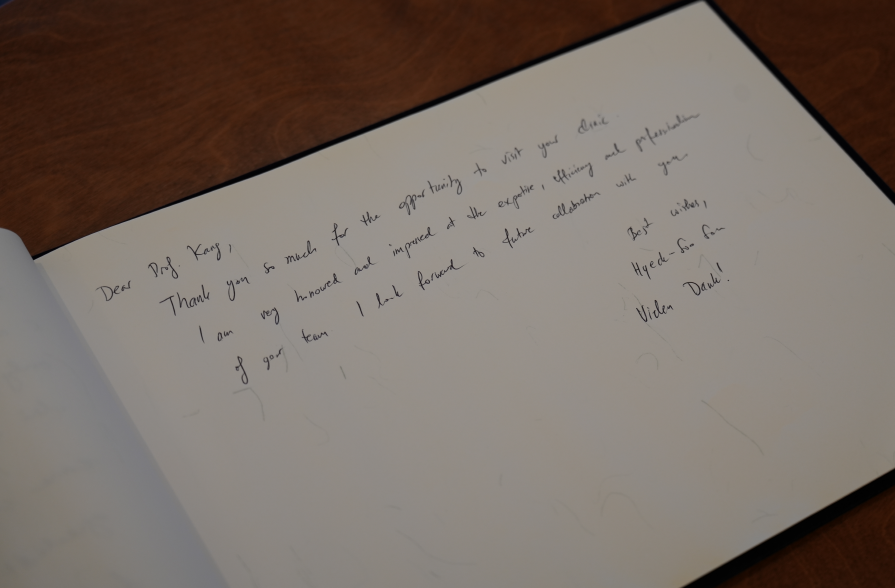 Dear Prof. Kang,
Thank you so much for the opportunity to visit your clinic.
I am very honored and impressed at the expertise, efficiency and professionalism
of your team I look forward to future collaboration with your
Best wishes,
Hyeck-Soo Son
Vielen Dank!